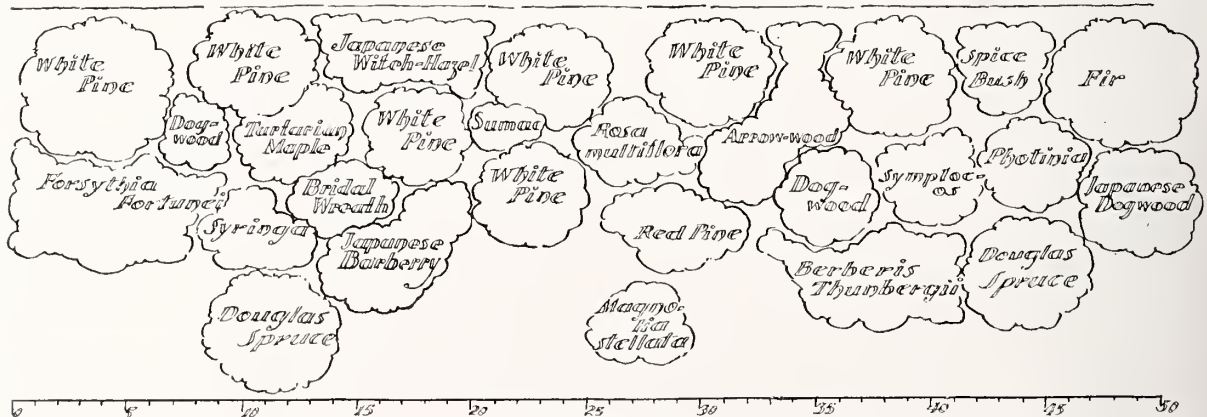 White
Pine
White
Pine
Japanese
Witch-Hazel
White
Pine
White
Pine
White
Pine
Spice
Bush
Fir
Dog-
wood
Tartarian
Maple
White
Pine
Sumac
Rosa
multiflora
Arrow-wood
Photinia
Forsythia
Fortunei
Bridal
Wreath
White
Pine
Dog-
wood
Symploc-
os
Japanese
Dogwood
Syringa
Japanese
Barberry
Red Pine
Berberis
Thunbergii
Douglas
Spruce
Douglas
Spruce
Magno-
lia
stellata
0 5 10 15 20 25 30 35 40 45 50